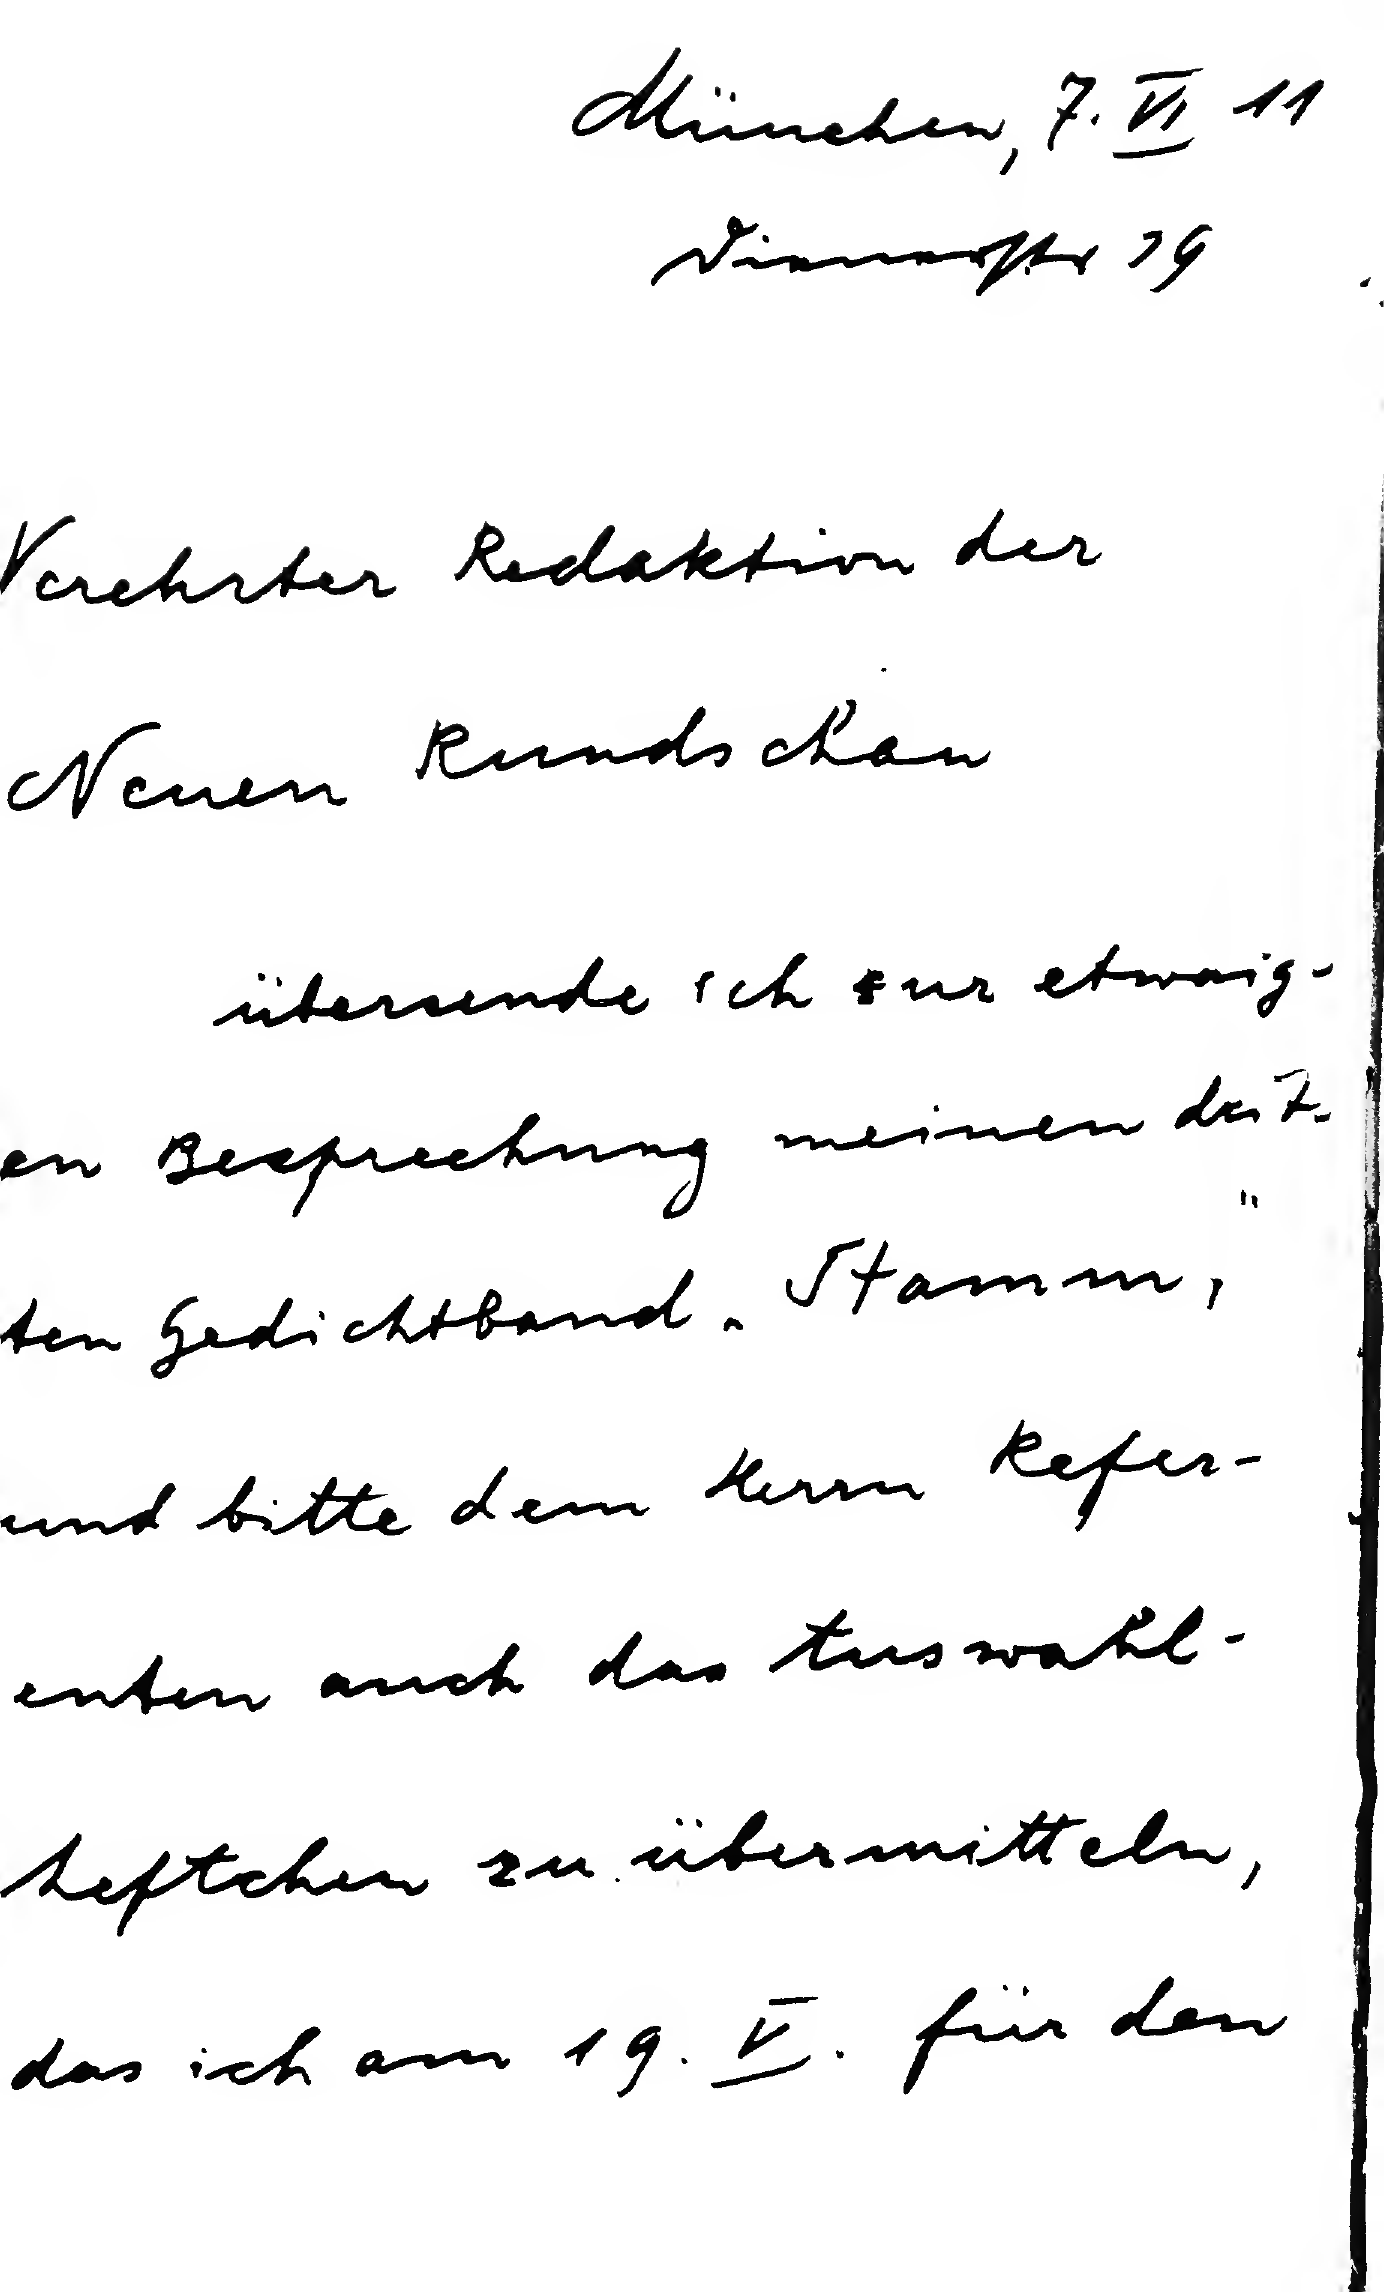 München, 7. VI 11
Verehrter Redaktion der
Neuen Rundschau
übersende ich zur etwaig-
en Besprechung meinen drit-
ten Gedichtband „Stamm,"
und bitte dem Herrn Refer-
enten auch das Auswahl-
heftchen zu übermitteln,
das ich am 19. V. für den